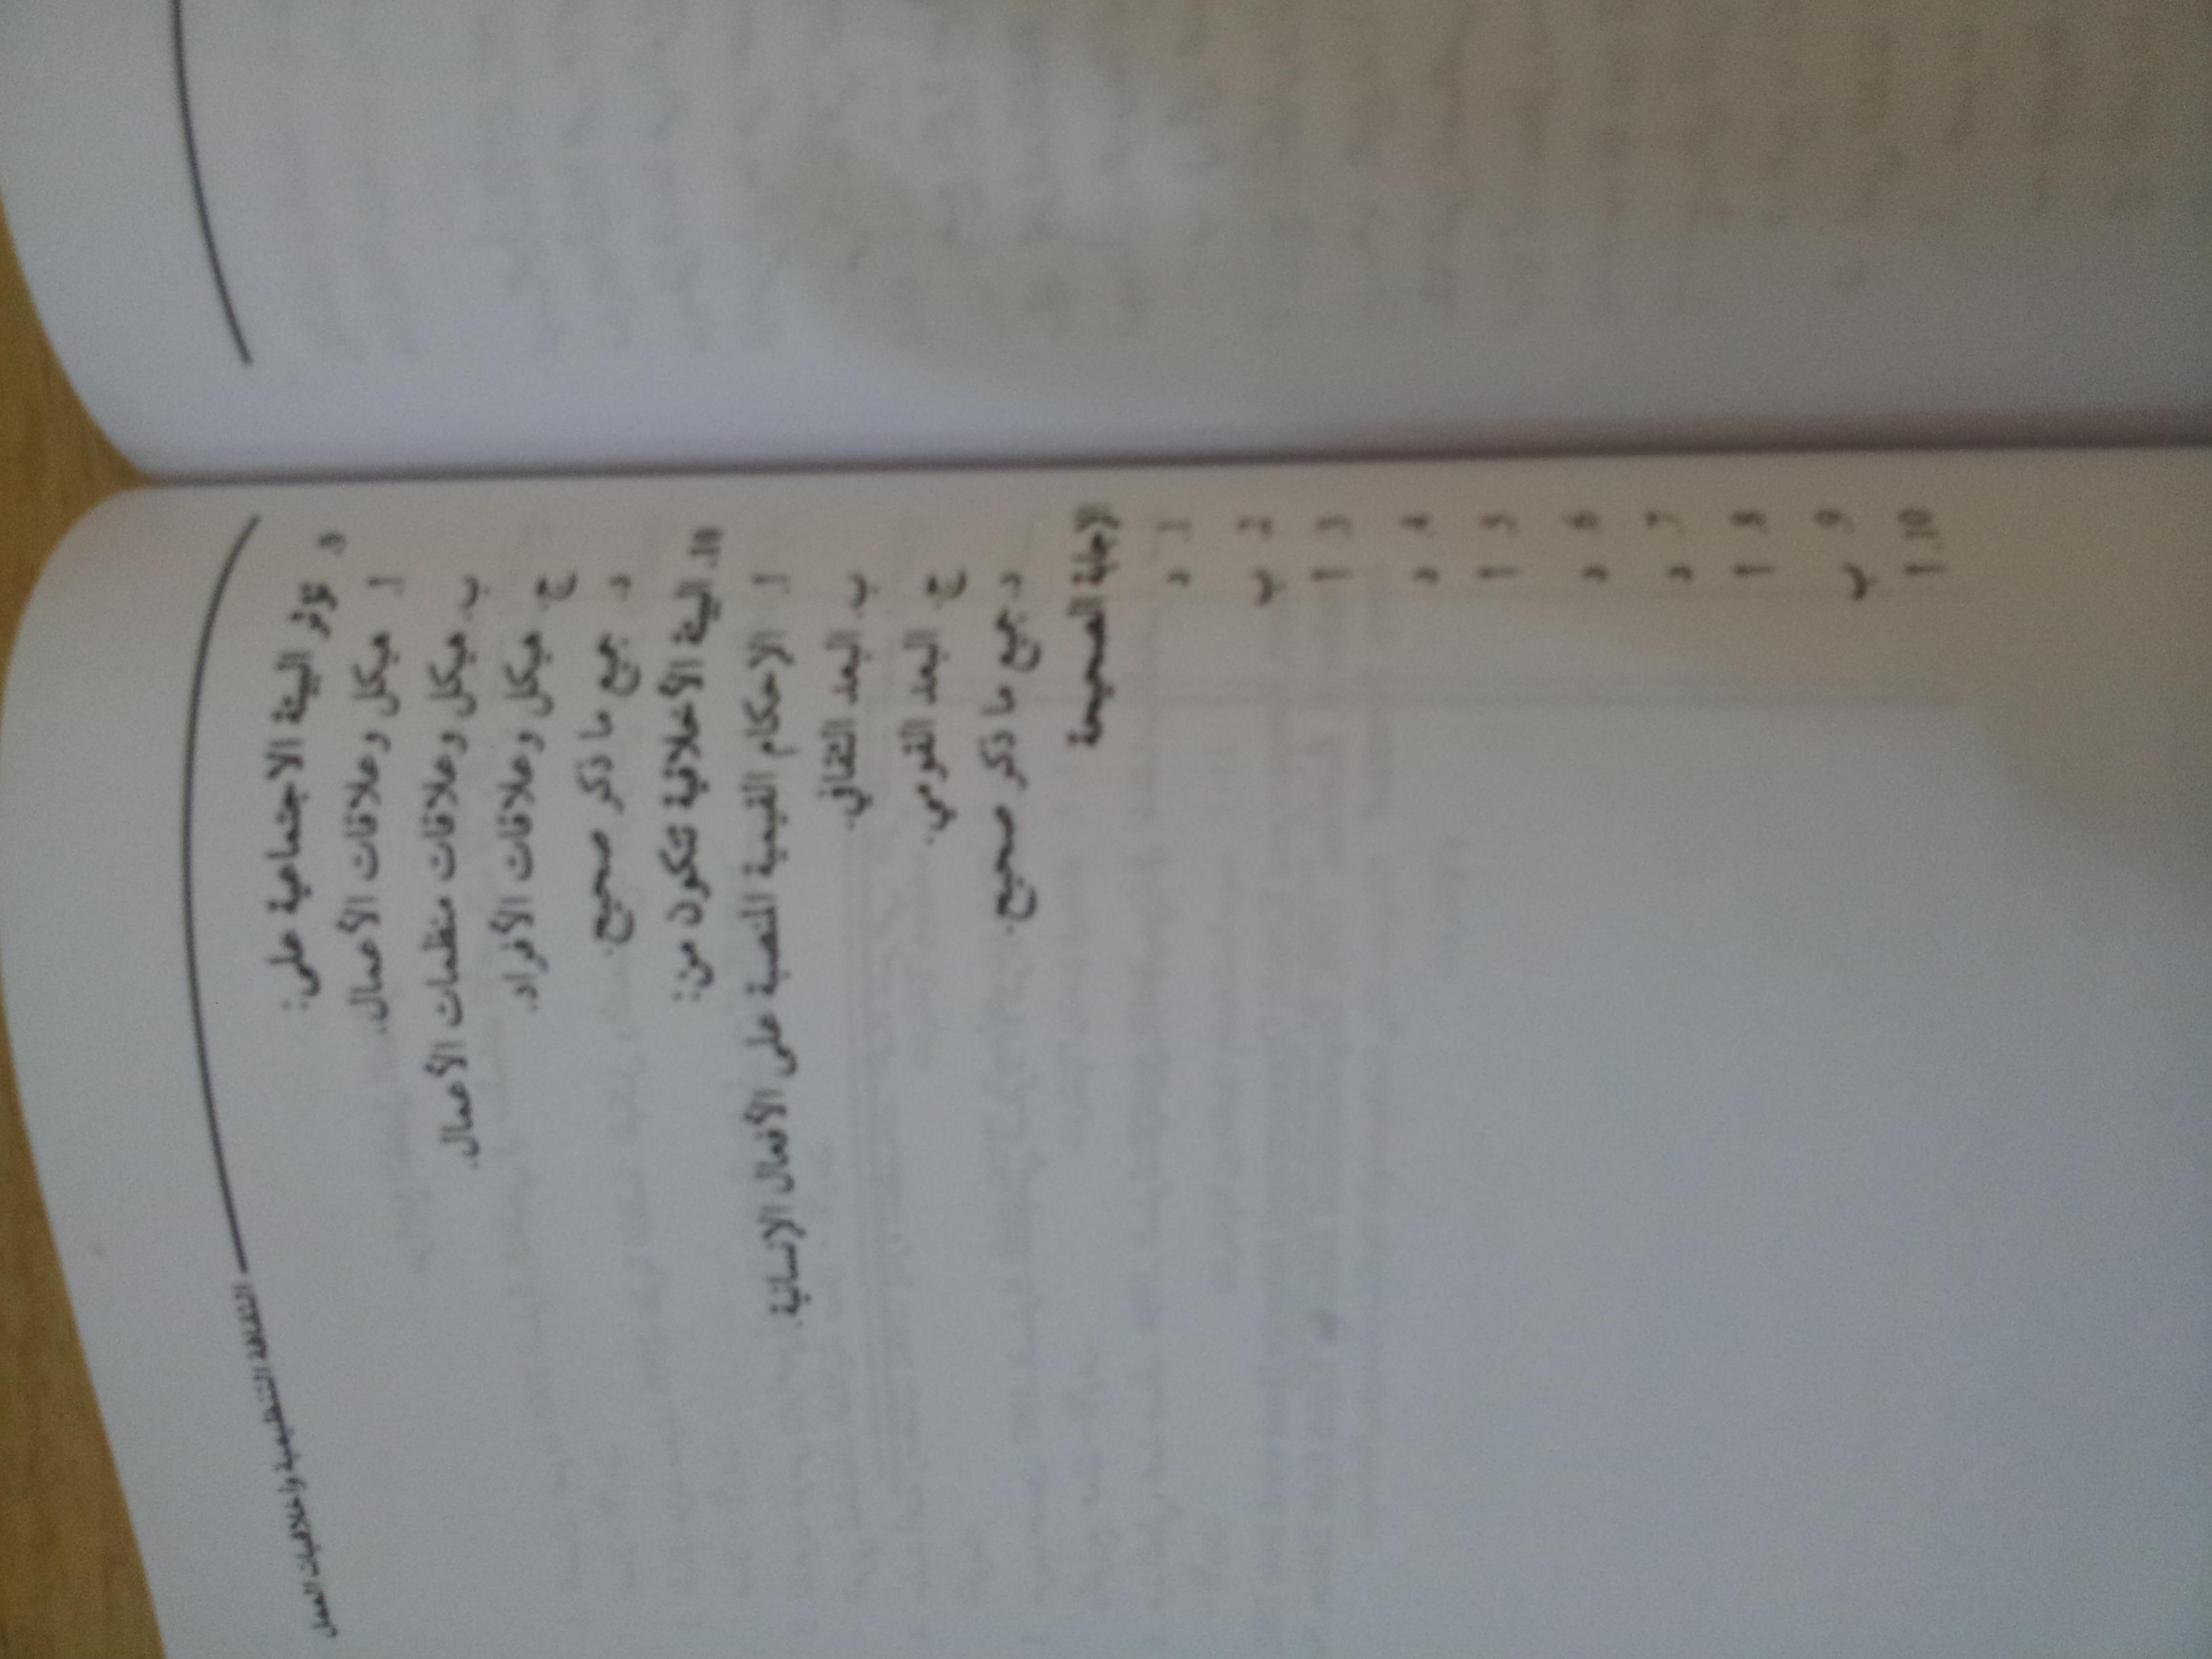 الثقافة التنظيمية وأخلاقيات العمل
9. تؤثر البيئة الاجتماعية على:
أ. هيكل وعلاقات الأعمال.
ب. هيكل وعلاقات منظمات الأعمال.
ج. هيكل وعلاقات الأفراد.
د. جميع ما ذكر صحيح.
10. البيئة الأخلاقية تتكون من:
أ. الاحكام القيمية المنصبة على الأفعال الإنسانية.
ب. البعد الثقافي.
ج. البعد القومي.
د. جميع ما ذكر صحيح.
الإجابة الصحيحة
1. د
2. ب
3. أ
4. د
5. أ
6. د
7. د
8. أ
9. ب
10. أ